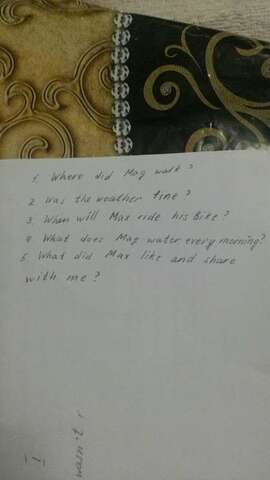 1. Where did Mag walk?
2. Was the weather fine?
3. When will Max ride his Bike?
4. What does Mag water every morning?
5. What did Max like and share
with me?
wasn't.